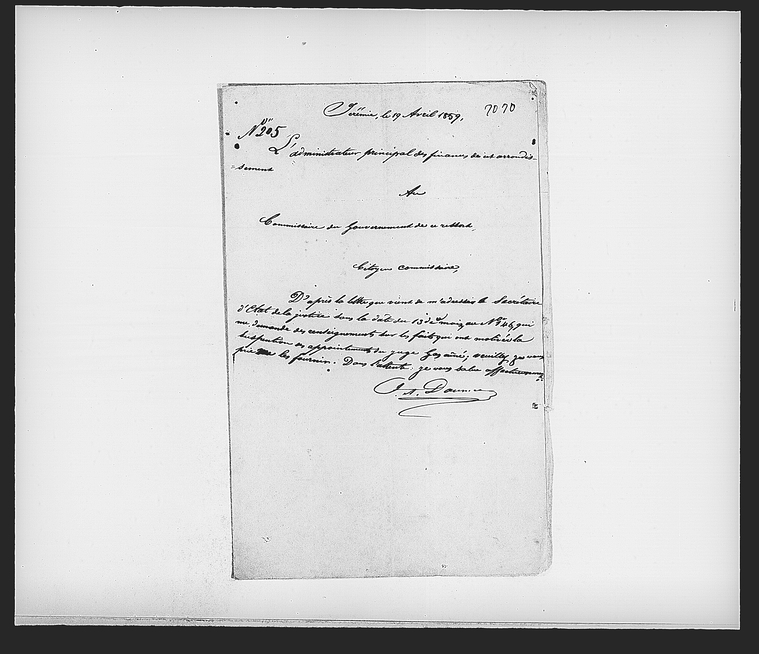 Jérémie, le 19 Avril 1859,
7070
Nº 205
L'administrateur principal des finances de cet arrondis-
sement
Au
Commissaire du Gouvernement de ce ressort,
Citoyen commissaire,
D'après la lettre que vient de m'adresser le Secrétaire
d'Etat de la justice sous la date du 13 du mois, au Nº 46, qui
me demande des renseignements sur les faits qui ont motivé la
suspension des appointements du juge Gas ainé, veuillez, je vous
prie me les fournir. Dans l'attente je vous salue affectueusement.